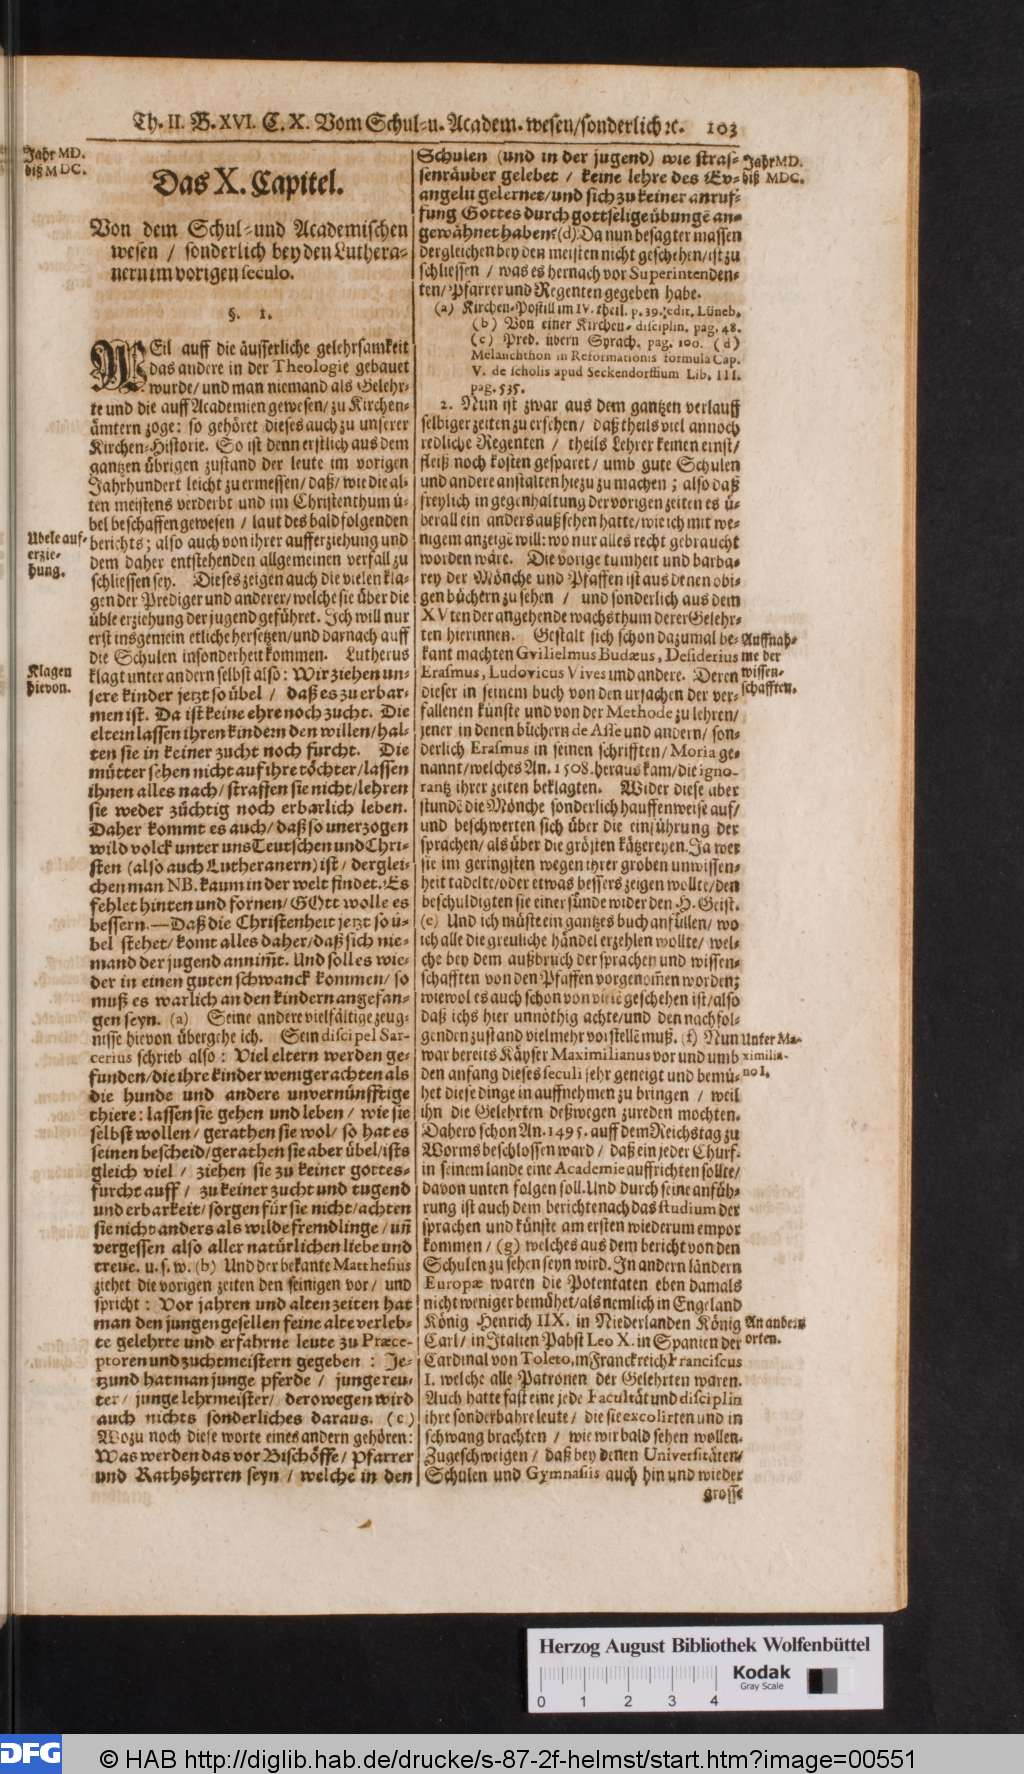 Th. II. B. XVI. C. X. Vom Schul-u. Academ. wesen/sonderlich ꝛc. 103
Jahr MD.
biß MDC.
Das X. Capitel.
Von dem Schul-und Academischen
wesen / sonderlich bey den Luthera-
nern im vorigen seculo.
§. 1.
WEil auff die äusserliche gelehrsamkeit
das andere in der Theologie gebauet
wurde/ und man niemand als Gelehr-
te und die auff Academien gewesen/ zu Kirchen-
ämtern zoge: so gehöret dieses auch zu unserer
Kirchen-Historie. So ist denn erstlich aus dem
gantzen übrigen zustand der leute im vorigen
Jahrhundert leicht zu ermessen/ daß/ wie die al-
ten meistens verderbt und im Christenthum ü-
bel beschaffen gewesen / laut des bald folgenden
berichts; also auch von ihrer aufferziehung und
dem daher entstehenden allgemeinen verfall zu
schliessen sey. Dieses zeigen auch die vielen kla-
gen der Prediger und anderer/ welche sie über die
üble erziehung der jugend geführet. Ich will nur
erst insgemein etliche hersetzen/ und darnach auff
die Schulen insonderheit kommen. Lutherus
klagt unter andern selbst also: Wir ziehen un-
sere kinder jetzt so übel / daß es zu erbar-
men ist. Da ist keine ehre noch zucht. Die
eltern lassen ihren kindern den willen/ hal-
ten sie in keiner zucht noch furcht. Die
mütter sehen nicht auf ihre töchter/ lassen
ihnen alles nach/ straffen sie nicht/ lehren
sie weder züchtig noch erbarlich leben.
Daher kommt es auch/ daß so unerzogen
wild volck unter uns Teutschen und Chri-
sten (also auch Lutheranern) ist/ derglei-
chen man NB. kaum in der welt findet. Es
fehlet hinten und fornen/ GOtt wolle es
bessern. — Daß die Christenheit jetzt so ü-
bel stehet/ komt alles daher/ daß sich nie-
mand der jugend annim̃t. Und soll es wie-
der in einen guten schwanck kommen/ so
muß es warlich an den kindern angefan-
gen seyn. (a) Seine andere vielfältige zeug-
nisse hievon übergehe ich. Sein discipel Sar-
cerius schrieb also: Viel eltern werden ge-
funden/ die ihre kinder weniger achten als
die hunde und andere unvernünfftige
thiere: lassen sie gehen und leben / wie sie
selbst wollen/ gerathen sie wol/ so hat es
seinen bescheid/ gerathen sie aber übel/ ists
gleich viel / ziehen sie zu keiner gottes-
furcht auff / zu keiner zucht und tugend
und erbarkeit/ sorgen für sie nicht/ achten
sie nicht anders als wilde fremdlinge/ uñ
vergessen also aller natürlichen liebe und
treue. u. s. w. (b) Und der bekante Matthesius
ziehet die vorigen zeiten den seinigen vor/ und
spricht: Vor jahren und alten zeiten hat
man den jungen gesellen feine alte verleb-
te gelehrte und erfahrne leute zu Præce-
ptoren und zuchtmeistern gegeben : Je-
tzund hat man junge pferde / junge reu-
ter/ junge lehrmeister/ derowegen wird
auch nichts sonderliches daraus. (c)
Wozu noch diese worte eines andern gehören:
Was werden das vor Bischöffe/ Pfarrer
und Rathsherren seyn / welche in den
Ubele auf-
erzie-
hung.
Klagen
hievon.
Schulen (und in der jugend) wie stras-
senräuber gelebet / keine lehre des Ev-
angelii gelernet/ und sich zu keiner anruf-
fung Gottes durch gottselige übungẽ an-
gewähnet haben? (d) Da nun besagter massen
dergleichen bey den meisten nicht geschehen/ ist zu
schliessen / was es hernach vor Superintenden-
ten/ Pfarrer und Regenten gegeben habe.
(a) Kirchen-Postill im IV. theil. p. 39. edit. Lüneb.
(b) Von einer Kirchen-disciplin. pag. 48.
(c) Pred. übern Syrach. pag. 100. (d)
Melanchthon in Reformationis formula Cap.
V. de scholis apud Seckendorffium Lib. III.
pag. 535.
2. Nun ist zwar aus dem gantzen verlauff
selbiger zeiten zu ersehen/ daß theils viel annoch
redliche Regenten / theils Lehrer keinen ernst/
fleiß noch kosten gesparet/ umb gute Schulen
und andere anstalten hiezu zu machen ; also daß
freylich in gegenhaltung der vorigen zeiten es ü-
berall ein anders außsehen hatte/ wie ich mit we-
nigem anzeigẽ will: wo nur alles recht gebraucht
worden wäre. Die vorige tumheit und barba-
rey der Mönche und Pfaffen ist aus denen obi-
gen büchern zu sehen / und sonderlich aus dem
XVten der angehende wachsthum derer Gelehr-
ten hierinnen. Gestalt sich schon dazumal be-
kant machten Gvilielmus Budæus, Desiderius
Erasmus, Ludovicus Vives und andere. Deren
dieser in seinem buch von den ursachen der ver-
fallenen künste und von der Methode zu lehren/
jener in denen büchern de Asse und andern/ son-
derlich Erasmus in seinen schrifften/ Moria ge-
nannt/ welches An. 1508. heraus kam/ die igno-
rantz ihrer zeiten beklagten. Wider diese aber
stundẽ die Mönche sonderlich hauffenweise auf/
und beschwerten sich über die einführung der
sprachen/ als über die grösten kätzereyen. Ja wer
sie im geringsten wegen ihrer groben unwissen-
heit tadelte/ oder etwas bessers zeigen wollte/ den
beschuldigten sie einer sünde wider den H. Geist.
(e) Und ich müste ein gantzes buch anfüllen/ wo
ich alle die greuliche händel erzehlen wollte/ wel-
che bey dem außbruch der sprachen und wissen-
schafften von den Pfaffen vorgenom̃en worden;
wiewol es auch schon von vielẽ geschehen ist/ also
daß ichs hier unnöthig achte/ und den nachfol-
genden zustand vielmehr vorstellẽ muß. (f) Nun
war bereits Käyser Maximilianus vor und umb
den anfang dieses seculi sehr geneigt und bemü-
het diese dinge in auffnehmen zu bringen / weil
ihn die Gelehrten deßwegen zureden mochten.
Dahero schon An. 1495. auff dem Reichstag zu
Worms beschlossen ward / daß ein jeder Churf.
in seinem lande eine Academie auffrichten sollte/
davon unten folgen soll. Und durch seine anfüh-
rung ist auch dem berichte nach das studium der
sprachen und künste am ersten wiederum empor
kommen / (g) welches aus dem bericht von den
Schulen zu sehen seyn wird. In andern ländern
Europæ waren die Potentaten eben damals
nicht weniger bemühet/ als nemlich in Engeland
König Henrich IIX. in Niederlanden König
Carl/ in Italien Pabst Leo X. in Spanien der
Cardinal von Toleto, in Franckreich Franciscus
I. welche alle Patronen der Gelehrten waren.
Auch hatte fast eine jede Facultät und disciplin
ihre sonderbahre leute/ die sie excolirten und in
schwang brachten / wie wir bald sehen wollen.
Zugeschweigen / daß bey denen Universitäten/
Schulen und Gymnasiis auch hin und wieder
grosse
Jahr MD.
biß MDC.
Auffnah-
me der
wissen-
schafften.
Unter Ma-
ximilia-
no I.
An andern
orten.
Herzog August Bibliothek Wolfenbüttel
0 1 2 3 4
Kodak
Gray Scale
DFG
© HAB http://diglib.hab.de/drucke/s-87-2f-helmst/start.htm?image=00551